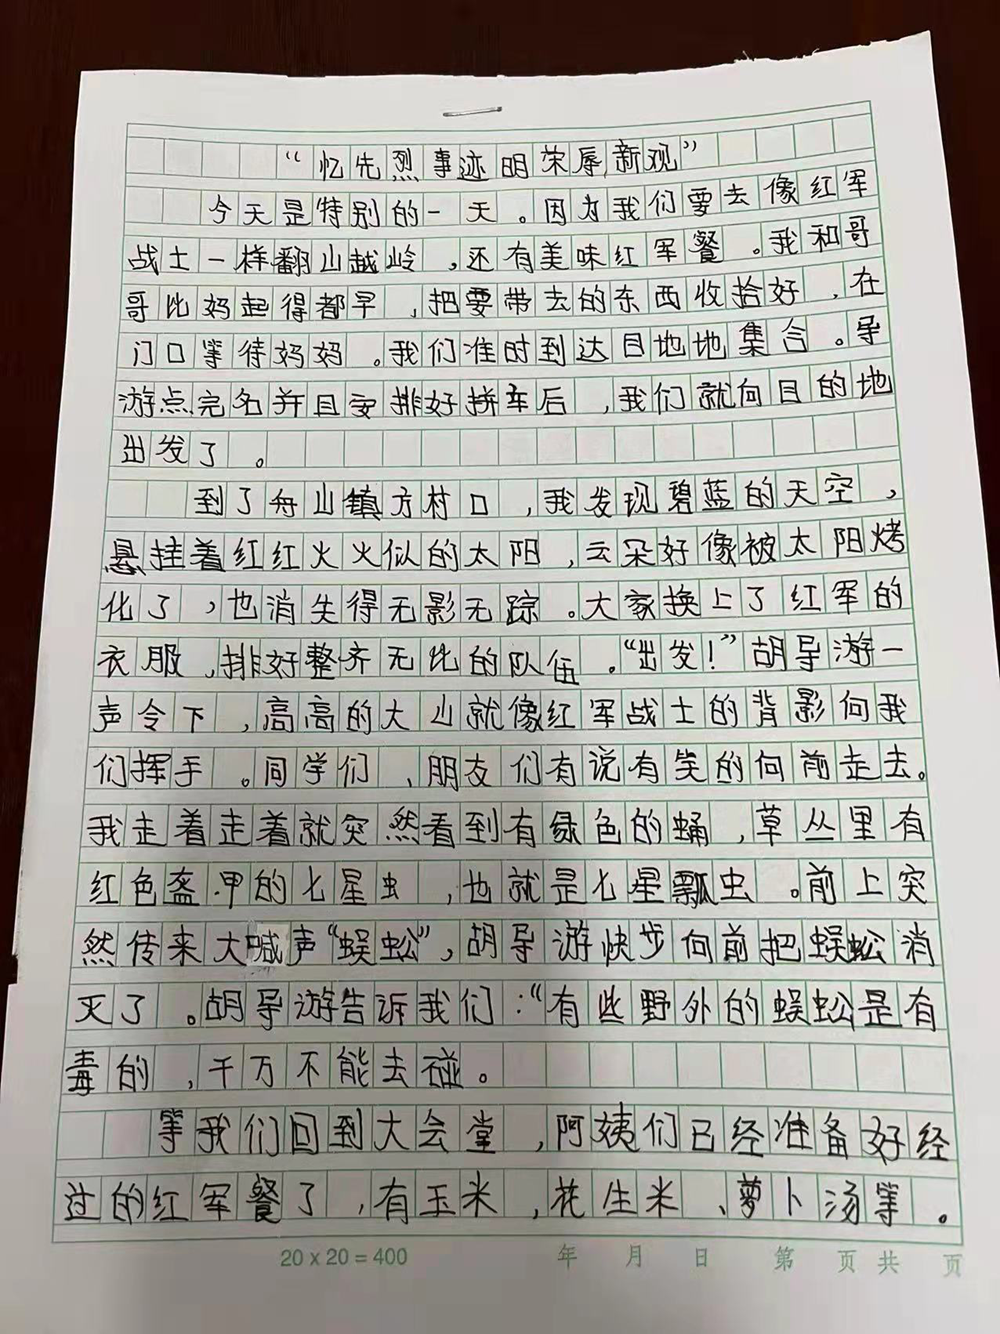 “忆先烈事迹明荣辱新观”
今天是特别的一天。因为我们要去像红军
战士一样翻山越岭，还有美味红军餐。我和哥
哥比妈起得都早，把要带去的东西收拾好，在
门口等待妈妈。我们准时到达目地地集合。导
游点完名并且安排好拼车后，我们就向目的地
出发了。
到了舟山镇方村口，我发现碧蓝的天空，
悬挂着红红火火似的太阳，云朵好像被太阳烤
化了，也消失得无影无踪。大家换上了红军的
衣服，排好整齐无比的队伍。“出发！”胡导游一
声令下，高高的大山就像红军战士的背影向我
们挥手。同学们、朋友们有说有笑的向前走去。
我走着走着就突然看到有绿色的蛹，草丛里有
红色盔甲的七星虫，也就是七星瓢虫。前上突
然传来大喊声“蜈蚣”，胡导游快步向前把蜈蚣消
灭了。胡导游告诉我们：“有些野外的蜈蚣是有
毒的，千万不能去碰。
等我们回到大会堂，阿姨们已经准备好经
过的红军餐了，有玉米，花生米、萝卜汤等。
20 x 20 = 400 年 月 日 第 页 共 页